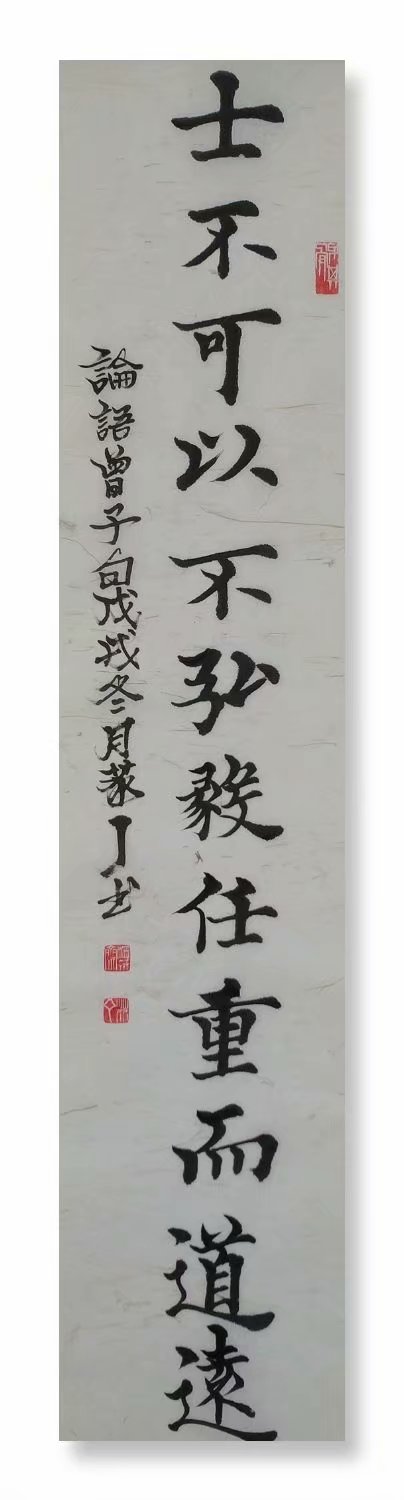 士不可以不弘毅任重而道遠
論語曾子句戊戌冬月 丁书